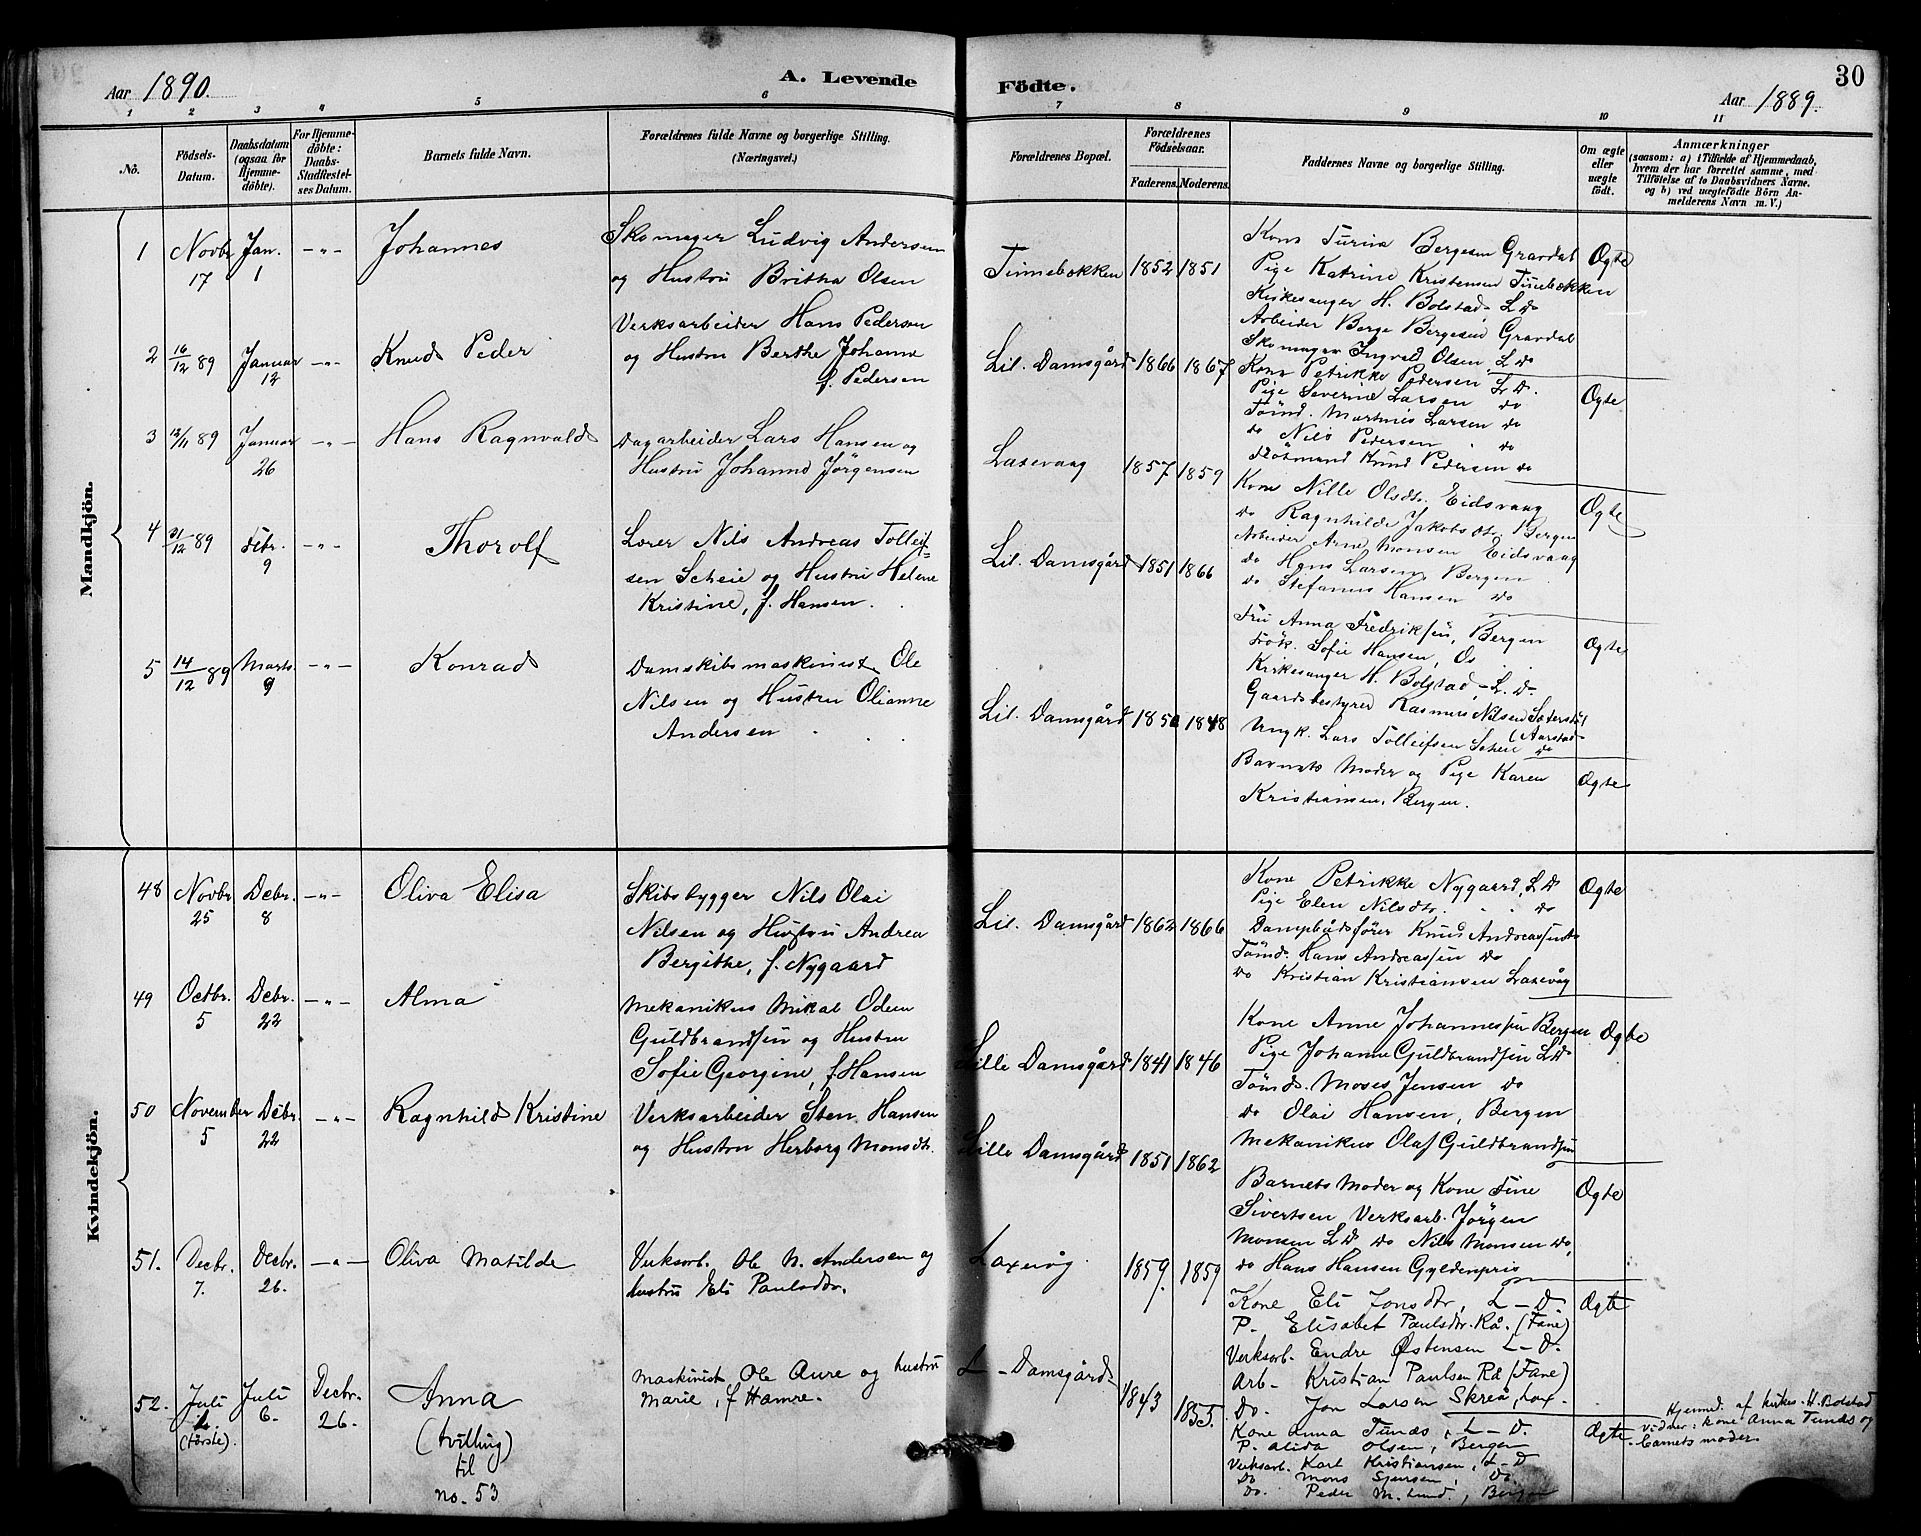 Aar 1890.
A. Levende
Födte.
Aar 1889.
30
1 2 3 4 5 6 7 8 9 10 11
No.
Födsels-
Datum.
Daabsdatum
(ogsaa for
Hjemme-
döbte).
For Hjemme-
döbte:
Daabs-
Stadfæstel-
ses Datum.
Barnets fulde Navn.
Forældrenes fulde Navne og borgerlige Stilling.
(Næringsvei.)
Forældrenes Bopæl.
Forældrenes
Födselsaar.
Faderens. Moderens.
Faddernes Navne og borgerlige Stilling.
Om ægte
eller
uægte
födt.
Anmærkninger
(saasom: a) i Tilfælde af Hjemmedaab,
hvem der har forrettet samme, med
Tilföielse af to Daabsvidners Navne,
og b) ved uægtefödte Börn An-
melderens Navn m. V.)
Mandkjön.
1 Novbr 17 Jan. 1 -"- Johannes
Skomager Ludvig Andersen
og Hustru Britha Olsen
Tinnebekken 1852 1851
Kone Turina Bergesen Gravdal
Pige Katrine Kristensen Tinebekken
Kirkesanger H. Bolstad L. D.
Arbeider Berge Bergesen Gravdal
Skomager Ingvald Olsen L. D.
Ægte
2 16/12 89 Januar 12 -"- Knud Peder
Verksarbeider Hans Pedersen
og Hustru Berthe Johanne
f. Pedersen
Lil. Damsgård 1866 1867
Kone Petrikke Pedersen L. D.
Pige Severine Larsen do
Tömd. Martines Larsen do
do Nils Pedersen do
Knud Pedersen do
Ægte
3 12/11 89 Januar 26 -"- Hans Ragnvald
Dagarbeider Lars Hansen og
Hustru Johanne Jörgensen
Laxevaag 1857 1859
Kone Nille Olsdtr. Eidsvaag
do Ragnhilde Jakobsdtr Bergen
Arbeider Arne Monsen Eidsvaag
do Hans Larsen, Bergen
do Stefanus Hansen do
Ægte
4 31/12 89 Febr. 9 -"- Thorolf
Lærer Nils Andreas Tolleif=
sen Scheie og Hustru Helene
Kristine, f. Hansen.
Lil. Damsgård 1851 1866
Fru Anna Fredriksen, Bergen
Frök. Sofie Hansen, Os
Kirkesanger H. Bolstad, L. D.
Gaardsbestyrer Rasmus Nilsen
(Aarstad
Ungk. Lars Tolleifsen Scheie do
Ægte
5 14/12 89 Marts 9 -"- Konrad
Damskibsmaskinist Ole
Nilsen og Hustru Olianne
Andersen
Lil. Damsgård 1850 1848
Barnets Moder og Pige Karen
Kristiansen, Bergen.
Ægte
Kvindekjön.
48 Novbr 25 Decbr. 8 -"- Oliva Elisa
Skibsbygger Nils Olai
Nilsen og Hustru Andrea
Bergithe, f. Nygaard
Lil. Damsgård 1862 1866
Kone Petrikke Nygaard, L D
Pige Elen Nilsdtr. do
Dampbådsfører Knud Andreassen do
Tömd. Hans Andreassen do
do Kristian Kristiansen Laxevåg
Ægte
49 Octbr. 5 Decbr. 22 -"- Alma
Mekanikus Mikal Odem
Guldbrandsen og Hustru
Sofie Georgine, f. Hansen
Lille Damsgård 1841 1846
Kone Anne Johannessen Bergen
Pige Johanne Guldbrandsen L. D.
Tömd. Moses Jensen do
do Olai Hansen, Bergen
Mekanikus Olaf Guldbrandsen
Ægte
50 November 5 Decbr. 22 -"- Ragnhild Kristine
Verksarbeider Sten Hansen
og Hustru Herborg Monsdtr.
Lille Damsgård 1851 1862
Barnets Moder og Kone Tine
Sivertsen Verksarb. Jörgen
Monsen L D do Nils Monsen do,
do Hans Hansen Gyldenpris
Ægte
51. Decbr. 7. Decbr. 26. -"- Oliva Matilde
Verksarb. Ole N. Andersen og
hustru Eli Paulsdtr.
Laxevåg 1859. 1859
Kone Eli Jonsdtr, L - D.
P. Elisabet Paulsdtr. Rå. (Fane)
Verksarb. Endre Østensen L - D.
Arb - Kristian Paulsen Rå (Fane)
Do. Jon Larsen Skreå, Lax.
Ægte
52. Juli 2. (første). Juli 6. Decbr. 26. Anna
(tvilling)
til
no. 53
Maskinist Ole Aure og hustru
Marie, f Hamre.
L - Damsgård 1843 1855.
Kone Anna Tunæs, L - D.
P. Alida Olsen, Bergen
Verksarb. Karl Kristiansen, L - D
Do Mons Sjursen, Do.
Do. Peder M. Lund, Bergen
Ægte
Hjemmed. af kirkes. H. Bolstad
Vidner: kone Anna Tunæs og
barnets moder.